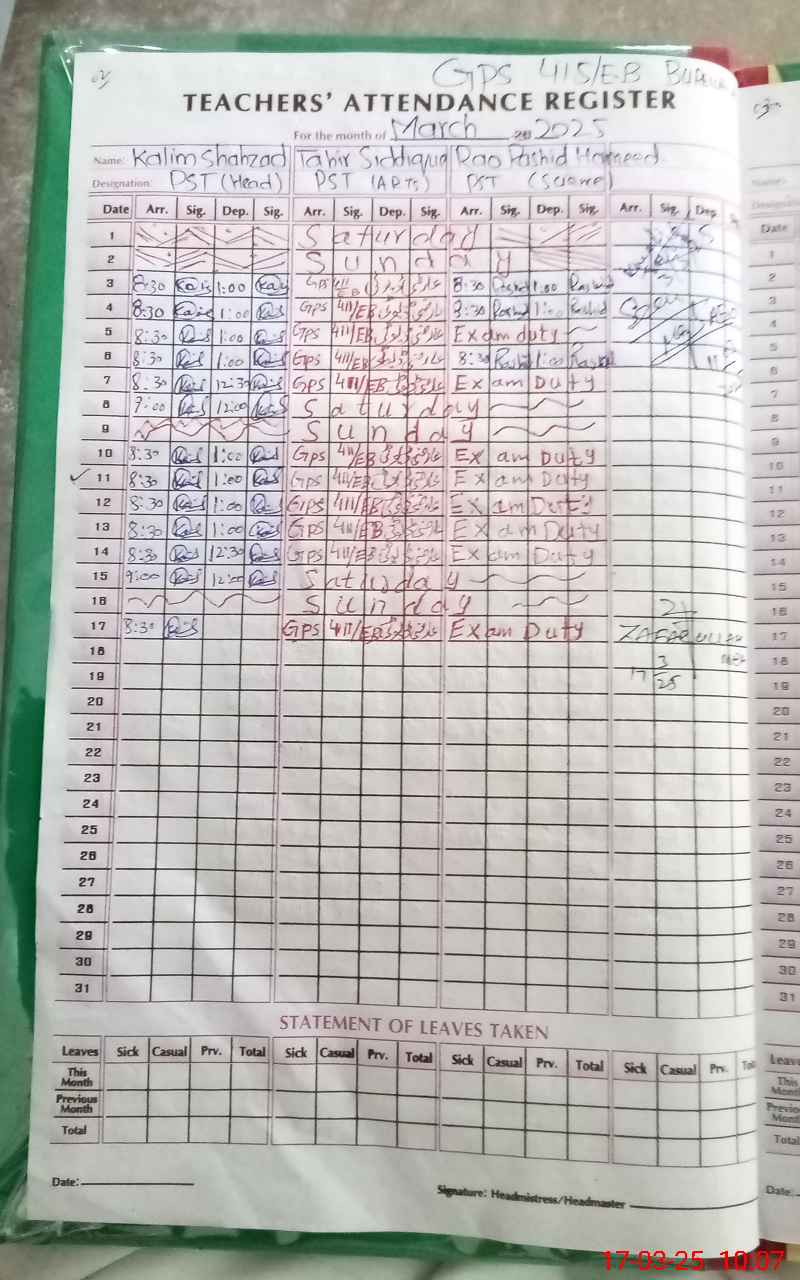 GPS 415/EB
TEACHERS' ATTENDANCE REGISTER
For the month of March 2025
Name: Kalim Shahzad Tahir Siddique Rao Rashid Hameed
Designation: PST (Head) PST (ARTS) PST (Science)
Date Arr. Sig. Dep. Sig. Arr. Sig. Dep. Sig. Arr. Sig. Dep. Sig. Arr. Sig. Dep
1 Saturday
2 Sunday
3 8:30 1:00 GPS 411/EB عارضی ڈیوٹی 8:30 Rashid 1:00 Rashid
4 8:30 1:00 GPS 411/EB عارضی ڈیوٹی 8:30 Rashid 1:00 Rashid
5 8:30 1:00 GPS 411/EB عارضی ڈیوٹی Exam duty
6 8:30 1:00 GPS 411/EB عارضی ڈیوٹی 8:30 Rashid 1:00 Rashid
7 8:30 12:30 GPS 411/EB عارضی ڈیوٹی Exam Duty
8 9:00 12:00 Saturday
9 Sunday
10 8:30 1:00 GPS 411/EB عارضی ڈیوٹی Exam Duty
11 8:30 1:00 GPS 411/EB عارضی ڈیوٹی Exam Duty
12 8:30 1:00 GPS 411/EB عارضی ڈیوٹی Exam Duty
13 8:30 1:00 GPS 411/EB عارضی ڈیوٹی Exam Duty
14 8:30 12:30 GPS 411/EB عارضی ڈیوٹی Exam Duty
15 9:00 12:00 Saturday
16 Sunday
17 8:30 GPS 411/EB عارضی ڈیوٹی Exam Duty
18
19
20
21
22
23
24
25
26
27
28
29
30
31
17 3 25
STATEMENT OF LEAVES TAKEN
Leaves Sick Casual Prv. Total Sick Casual Prv. Total Sick Casual Prv. Total Sick Casual Prv.
This Month
Previous Month
Total
Date:
Signature: Headmistress/Headmaster
Date
1
2
3
4
5
6
7
8
9
10
11
12
13
14
15
16
17
18
19
20
21
22
23
24
25
26
27
28
29
30
31
Total
Date:
17-03-25 10:07